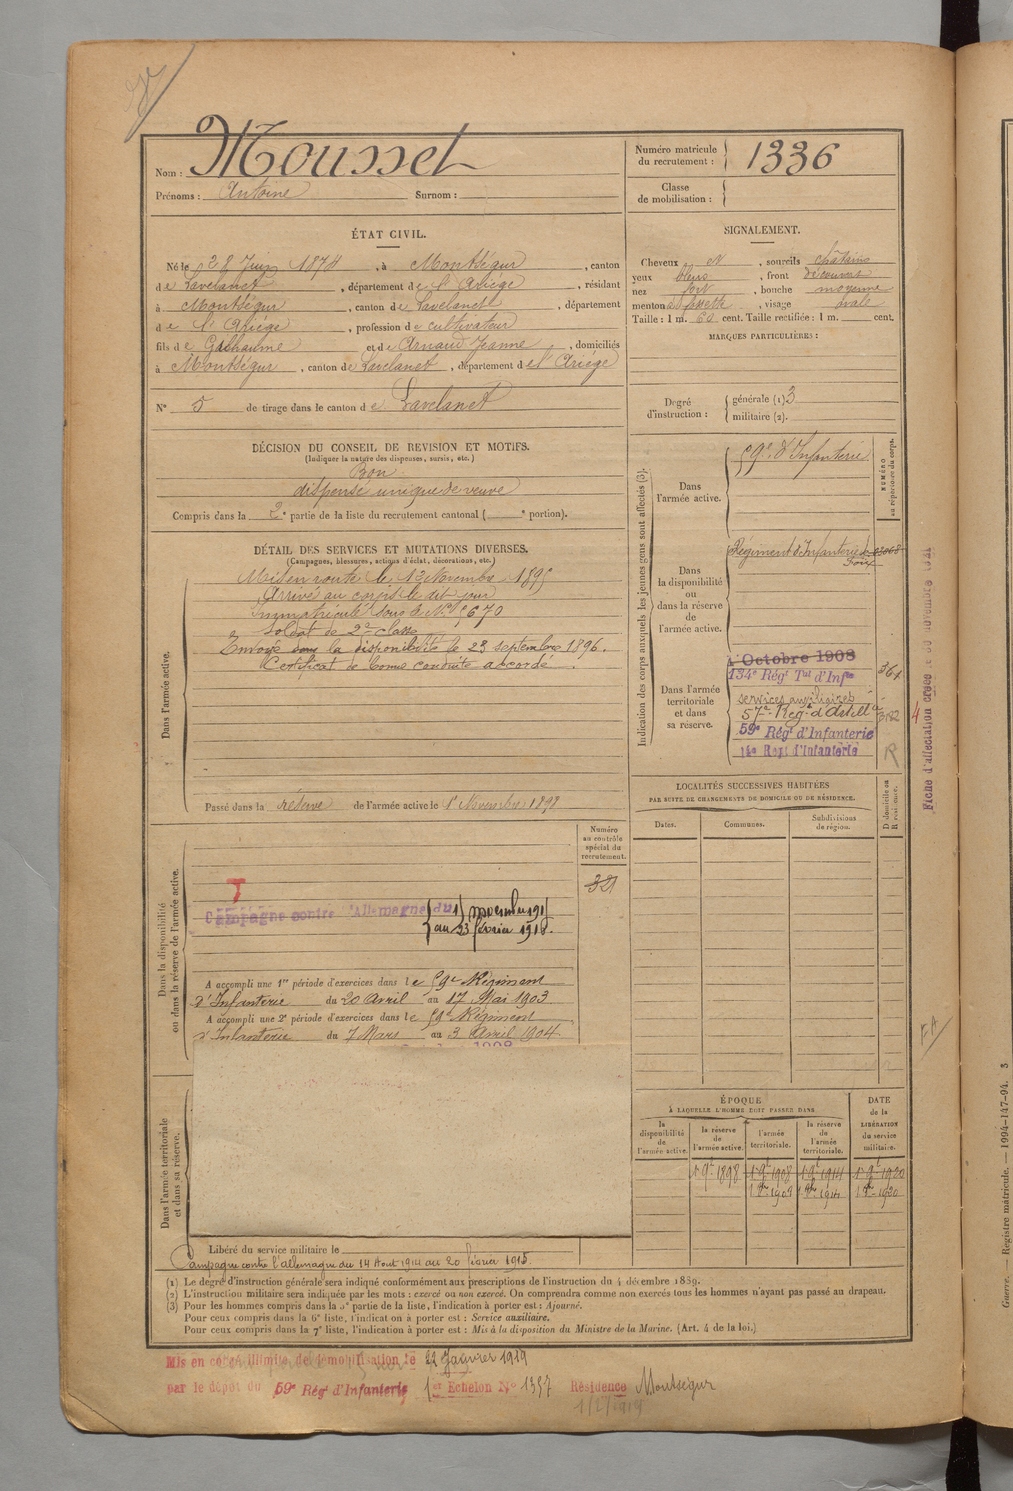 Nom : Mousset
Prénoms : Antoine Surnom :
Numéro matricule du recrutement : 1336
Classe de mobilisation :
ÉTAT CIVIL.
Né le 28 Juin 1874, à Montségur, canton
de Lavelanet, département de l'Ariége, résidant
à Montségur, canton de Lavelanet, département
de l'Ariége, profession de cultivateur
fils de Guilhaume et de Arnaud Jeanne, domiciliés
à Montségur, canton de Lavelanet, département de l'Ariége
N° 5 de tirage dans le canton de Lavelanet
SIGNALEMENT.
Cheveux et, sourcils châtains
yeux bleus, front découvert
nez fort, bouche moyenne
menton à fossette, visage ovale
Taille : 1 m. 60 cent. Taille rectifiée : 1 m. cent.
MARQUES PARTICULIÈRES :
Degré d'instruction : générale (1) 3
militaire (2).
DÉCISION DU CONSEIL DE REVISION ET MOTIFS.
(Indiquer la nature des dispenses, sursis, etc.)
Bon
dispensé unique de veuve
Compris dans la 2e partie de la liste du recrutement cantonal ( e portion).
DÉTAIL DES SERVICES ET MUTATIONS DIVERSES.
(Campagnes, blessures, actions d'éclat, décorations, etc.)
Dans l'armée active.
Mis en route le 13 Novembre 1895
Arrivé au corps le dit jour
Immatriculé sous le N° 5670
Soldat de 2e classe
Envoyé dans la disponibilité le 23 septembre 1896.
Certificat de bonne conduite accordé.
Passé dans la réserve de l'armée active le 1er Novembre 1898
Indication des corps auxquels les jeunes gens sont affectés (3).
NUMÉRO au répertoire du corps.
Dans l'armée active.
59e d'Infanterie
Dans la disponibilité ou dans la réserve de l'armée active.
Régiment d'Infanterie de Foix
Dans l'armée territoriale et dans sa réserve.
1 Octobre 1908
134e Régt Tal d'Infie
364
services auxiliaires
57e Regt d'Artille
59e Régt d'Infanterie
14e Regt d'Infanterie
R
Fiche d'affectation créée le 30 novembre 1921
LOCALITÉS SUCCESSIVES HABITÉES
PAR SUITE DE CHANGEMENTS DE DOMICILE OU DE RÉSIDENCE.
Dates. Communes. Subdivisions de région. D domicile ou R résidence.
Dans la disponibilité ou dans la réserve de l'armée active.
Numéro au contrôle spécial du recrutement.
321
T
Campagne contre l'Allemagne du 1er novembre 191
au 23 février 1918.
A accompli une 1re période d'exercices dans le 59e Régiment
d'Infanterie du 20 Avril au 17 Mai 1903
A accompli une 2e période d'exercices dans le 59e Régiment
d'Infanterie du 7 Mars au 3 Avril 1904
1908
FA
ÉPOQUE
À LAQUELLE L'HOMME DOIT PASSER DANS
DATE de la LIBÉRATION du service militaire.
la disponibilité de l'armée active. la réserve de l'armée active. l'armée territoriale. la réserve de l'armée territoriale.
1er 9bre 1898 1er 9bre 1908 1er 9bre 1914 1er 9bre 1920
1er 1908 1er 1914 1er 1920
Dans l'armée territoriale et dans sa réserve.
Libéré du service militaire le
Campagne contre l'allemagne du 14 Aout 1914 au 20 février 1915.
(1) Le degré d'instruction générale sera indiqué conformément aux prescriptions de l'instruction du 4 décembre 1889.
(2) L'instruction militaire sera indiquée par les mots : exercé ou non exercé. On comprendra comme non exercés tous les hommes n'ayant pas passé au drapeau.
(3) Pour les hommes compris dans la 5e partie de la liste, l'indication à porter est : Ajourné.
Pour ceux compris dans la 6e liste, l'indication à porter est : Service auxiliaire.
Pour ceux compris dans la 7e liste, l'indication à porter est : Mis à la disposition du Ministre de la Marine. (Art. 4 de la loi.)
Mis en congé illimité de démobilisation le 22 Janvier 1919
par le dépôt du 59e Régt d'Infanterie 1er Echelon N° 1357 Résidence Montségur
Guerre. — Registre matricule. — 1994-147-94. 3